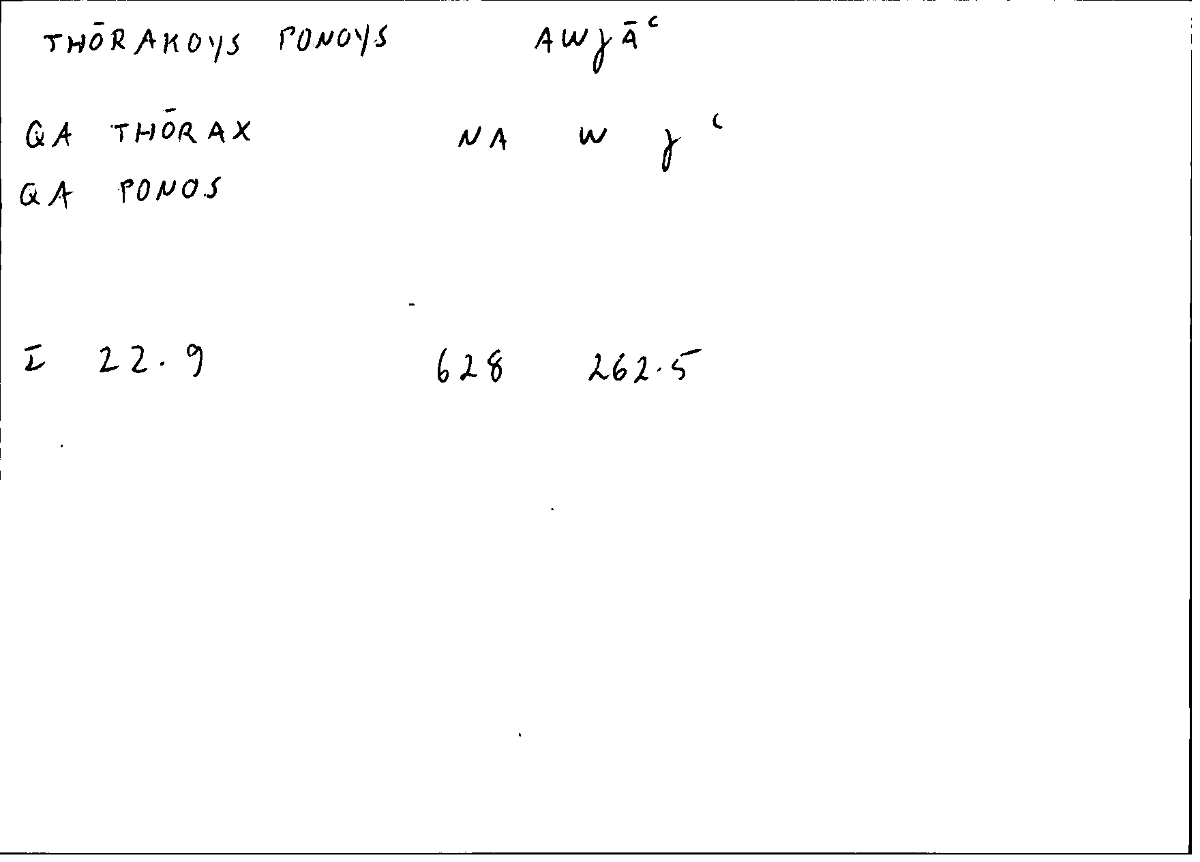 THŌRAKOYS PONOYS AWJĀʿ
QA THŌRAX NA W J ʿ
QA PONOS
I 22.9 628 262.5